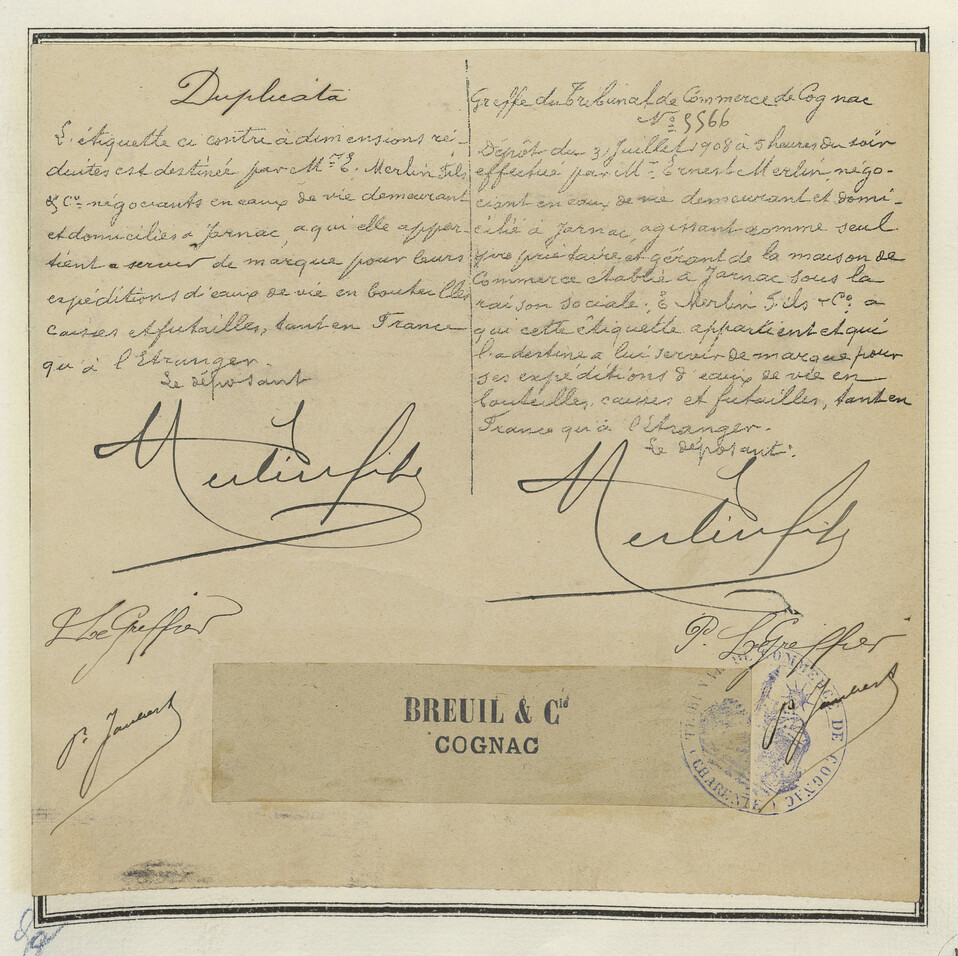 Duplicata
L'étiquette ci contre à dimensions ré-
duites est destinée par Mr E. Merlin Fils
& Cie négociants en eaux de vie demeurant
et domiciliés à Jarnac, a qui elle appar-
tient a servir de marque pour leurs
expéditions d'eaux de vie en bouteilles
caisses et futailles, tant en France
qu'à l'Etranger.
Le déposant
Merlin fils
P. Le Greffier
Pr. Jaubert
Greffe du Tribunal de Commerce de Cognac
No 5566
Dépôt du 31 Juillet 1908 à 5 heures du soir
effectué par Mr Ernest Merlin, négo-
ciant en eaux de vie demeurant et domi-
cilié à Jarnac, agissant comme seul
propriétaire et gérant de la maison de
Commerce établie à Jarnac sous la
raison sociale: E Merlin Fils & Co. a
qui cette étiquette appartient et qui
l'a destine a lui servir de marque pour
ses expéditions d'eaux de vie en
bouteilles, caisses et futailles, tant en
France qu'à l'étranger.
Le déposant:
Merlin fils
P. Le Greffier
Jaubert
BREUIL & Cie
COGNAC
TRIBUNAL DE COMMERCE DE COGNAC
(CHARENTE)